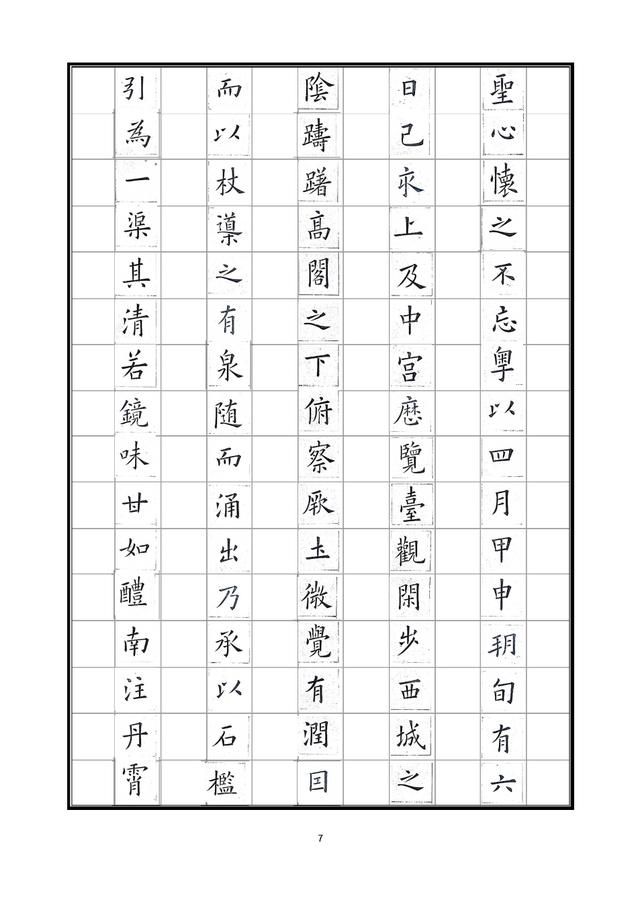 聖心懷之不忘粵以四月甲申朔旬有六
日己亥上及中宮歷覽臺觀閑步西城之
陰躊躇高閣之下俯察厥土微覺有潤因
而以杖導之有泉随而涌出乃承以石檻
引為一渠其清若鏡味甘如醴南注丹霄
7